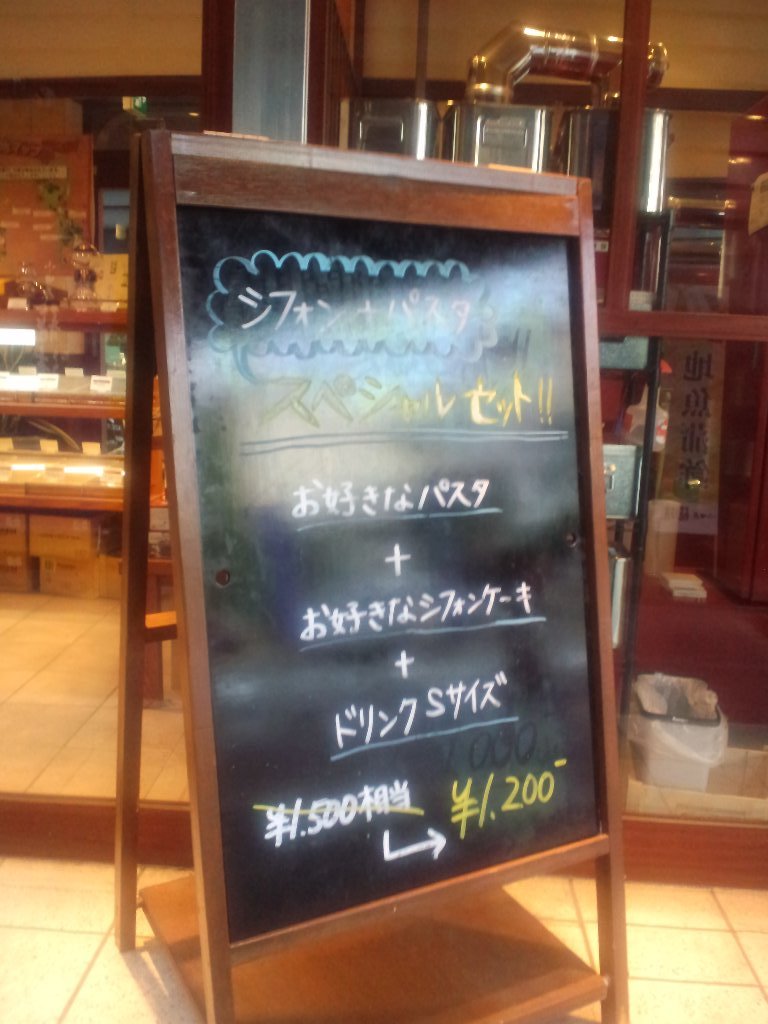 シフォン+パスタ
スペシャルセット!!
お好きなパスタ
+
お好きなシフォンケーキ
+
ドリンクSサイズ
¥1.500相当
¥1.200-